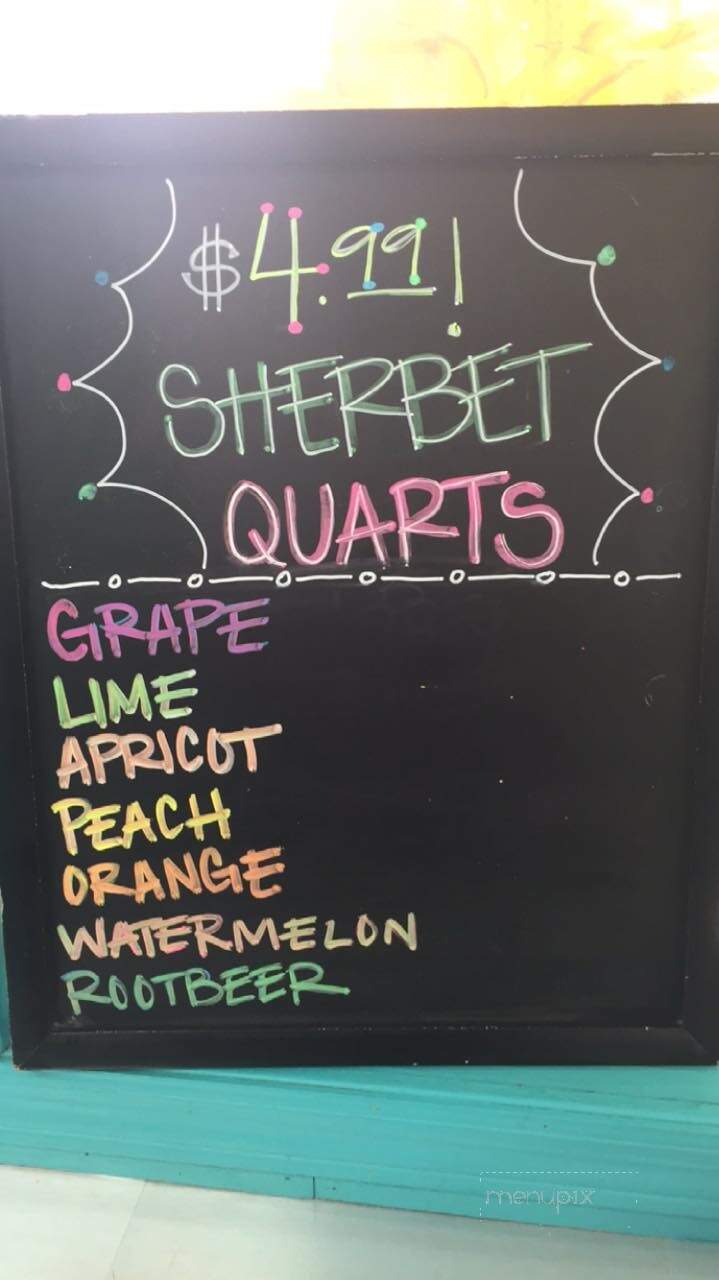 $4.99!
SHERBET
QUARTS
GRAPE
LIME
APRICOT
PEACH
ORANGE
WATERMELON
ROOTBEER
menupix